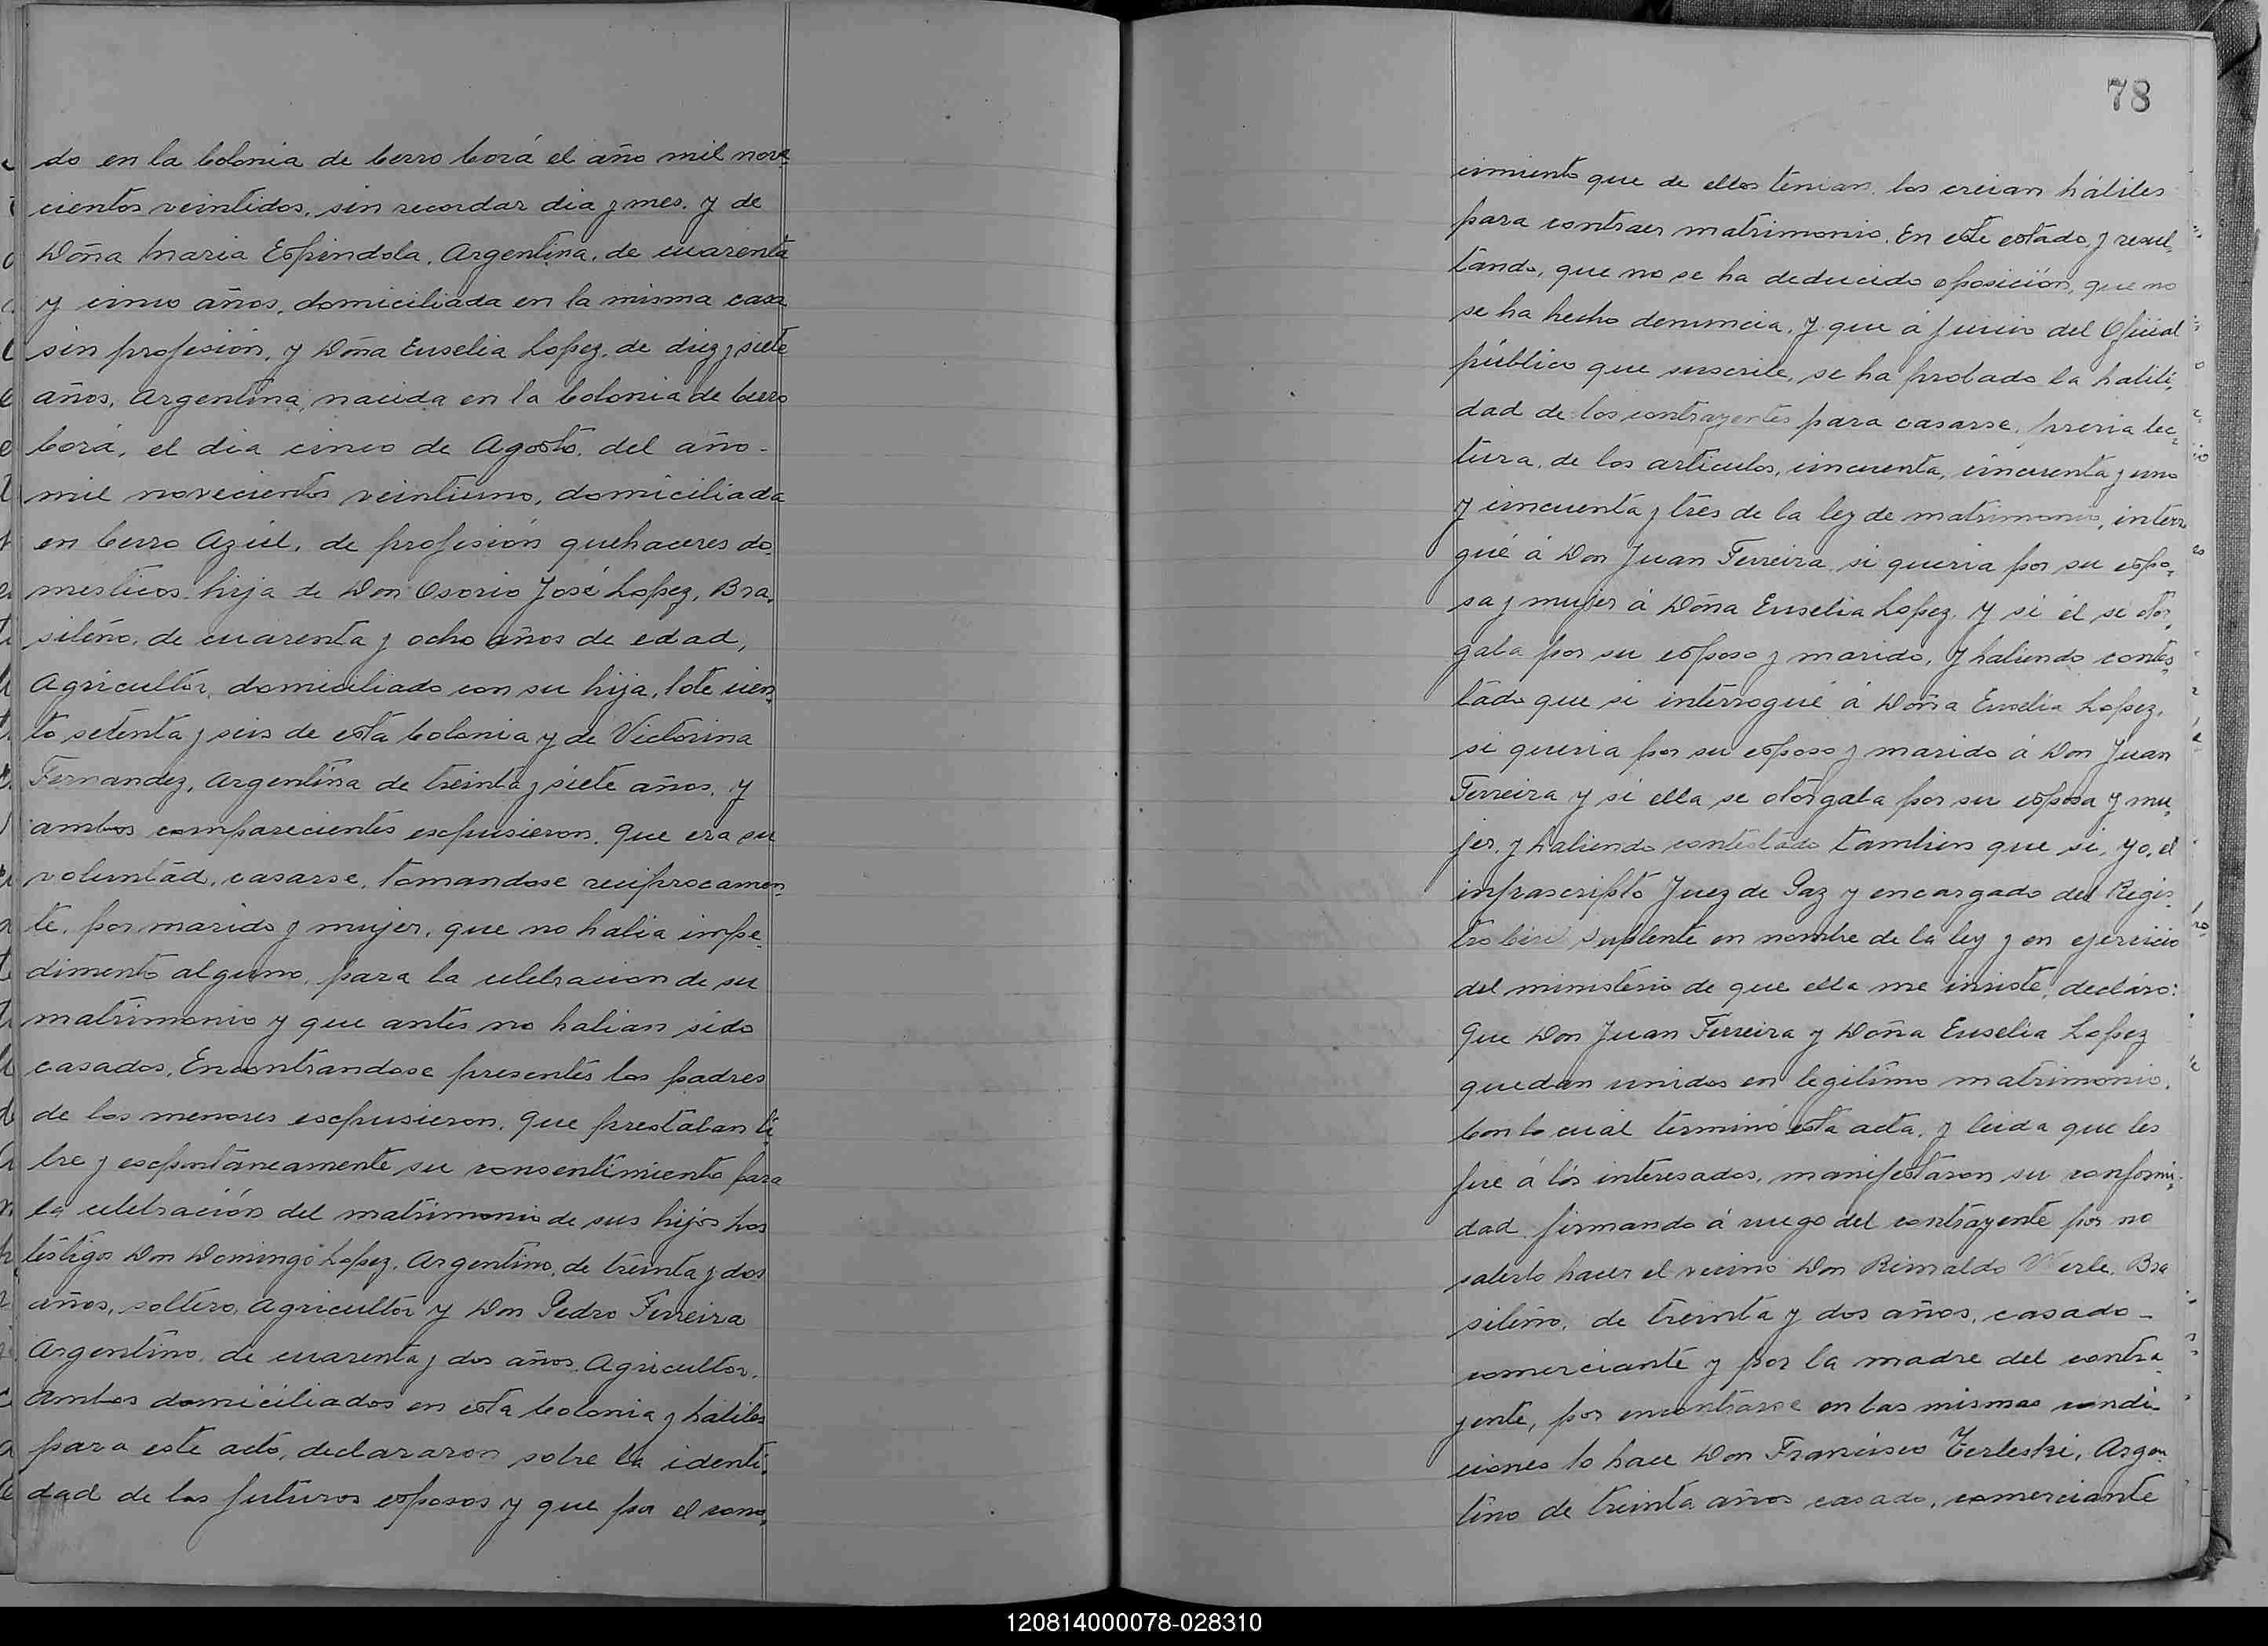 do en la Colonia de Cerro Corá el año mil nove-
cientos veintidos, sin recordar dia y mes. y de
Doña Maria Espindola, Argentina, de cuarenta
y cinco años, domiciliada en la misma casa
sin profesión, y Doña Euselia Lopez, de diez y siete
años, Argentina, nacida en la Colonia de Cerro
Corá, el dia cinco de Agosto, del año -
mil novecientos veintiuno, domiciliada
en Cerro Azúl, de profesión quehaceres do-
mesticos, hija de Don Osorio José Lopez, Bra-
sileño, de cuarenta y ocho años de edad,
Agricultor, domiciliado con su hija, lote cien-
to setenta y seis de esta Colonia y de Victorina
Fernandez, Argentina de treinta y siete años, y
ambos comparecientes escpusieron, que era su
voluntad, casarse, tomandose reciprocamen-
te, por marido y mujer, que no habia impe-
dimento alguno, para la celebracion de su
matrimonio y que antes no habian sido
casados, Encontrandose presentes los padres
de los menores escpusieron, que prestaban li-
bre y escpontáneamente su consentimiento para
la celebración del matrimonio de sus hijos Los
testigos Don Domingo Lopez, Argentino, de treinta y dos
años, soltero, Agricultor y Don Pedro Ferreira
Argentino, de cuarenta y dos años Agricultor,
Ambos domiciliados en esta Colonia y habiles
para este acto, declararon sobre la identi-
dad de los futuros esposos y que por el cono-
78
cimiento que de ellos tenian, los creian hábiles
para contraer matrimonio. En este estado, y resul-
tando, que no se ha deducido oposición, que no
se ha hecho denuncia, y que á juicio del Oficial
público que suscribe, se ha probado la habili-
dad de los contrayentes para casarse, previa lec-
tura, de los articulos, cincuenta, cincuenta y uno
y cincuenta y tres de la ley de matrimonio, interro
gué á Don Juan Ferreira si queria por su espo-
sa y mujer á Doña Euselia Lopez, y si él se otor-
gaba por su esposo y marido, y habiendo contes-
tado que si interrogué á Doña Euselia Lopez,
si queria por su esposo y marido á Don Juan
Ferreira y si ella se otorgaba por su esposa y mu-
jer, y habiendo contestado tambien que si, yo, el
infrascripto Juez de Paz y encargado del Regis-
tro Civil Suplente en nombre de la ley y en ejercicio
del ministerio de que ella me inviste, declaro:
Que Don Juan Ferreira y Doña Euselia Lopez
quedan unidos en legitimo matrimonio.
Con lo cuál terminó esta acta, y leida que les
fué á lós interesados, manifestaron su conformi-
dad firmando á ruego del contrayente por no
saberlo hacer el vecino Don Rimaldo Werle, Bra
sileño, de treinta y dos años, casado -
comerciante y por la madre del contra-
yente, por encontrarse en las mismas condi-
ciones lo hace Don Francisco Terleski, Argen-
tino de treinta años casado, comerciante
120814000078-028310